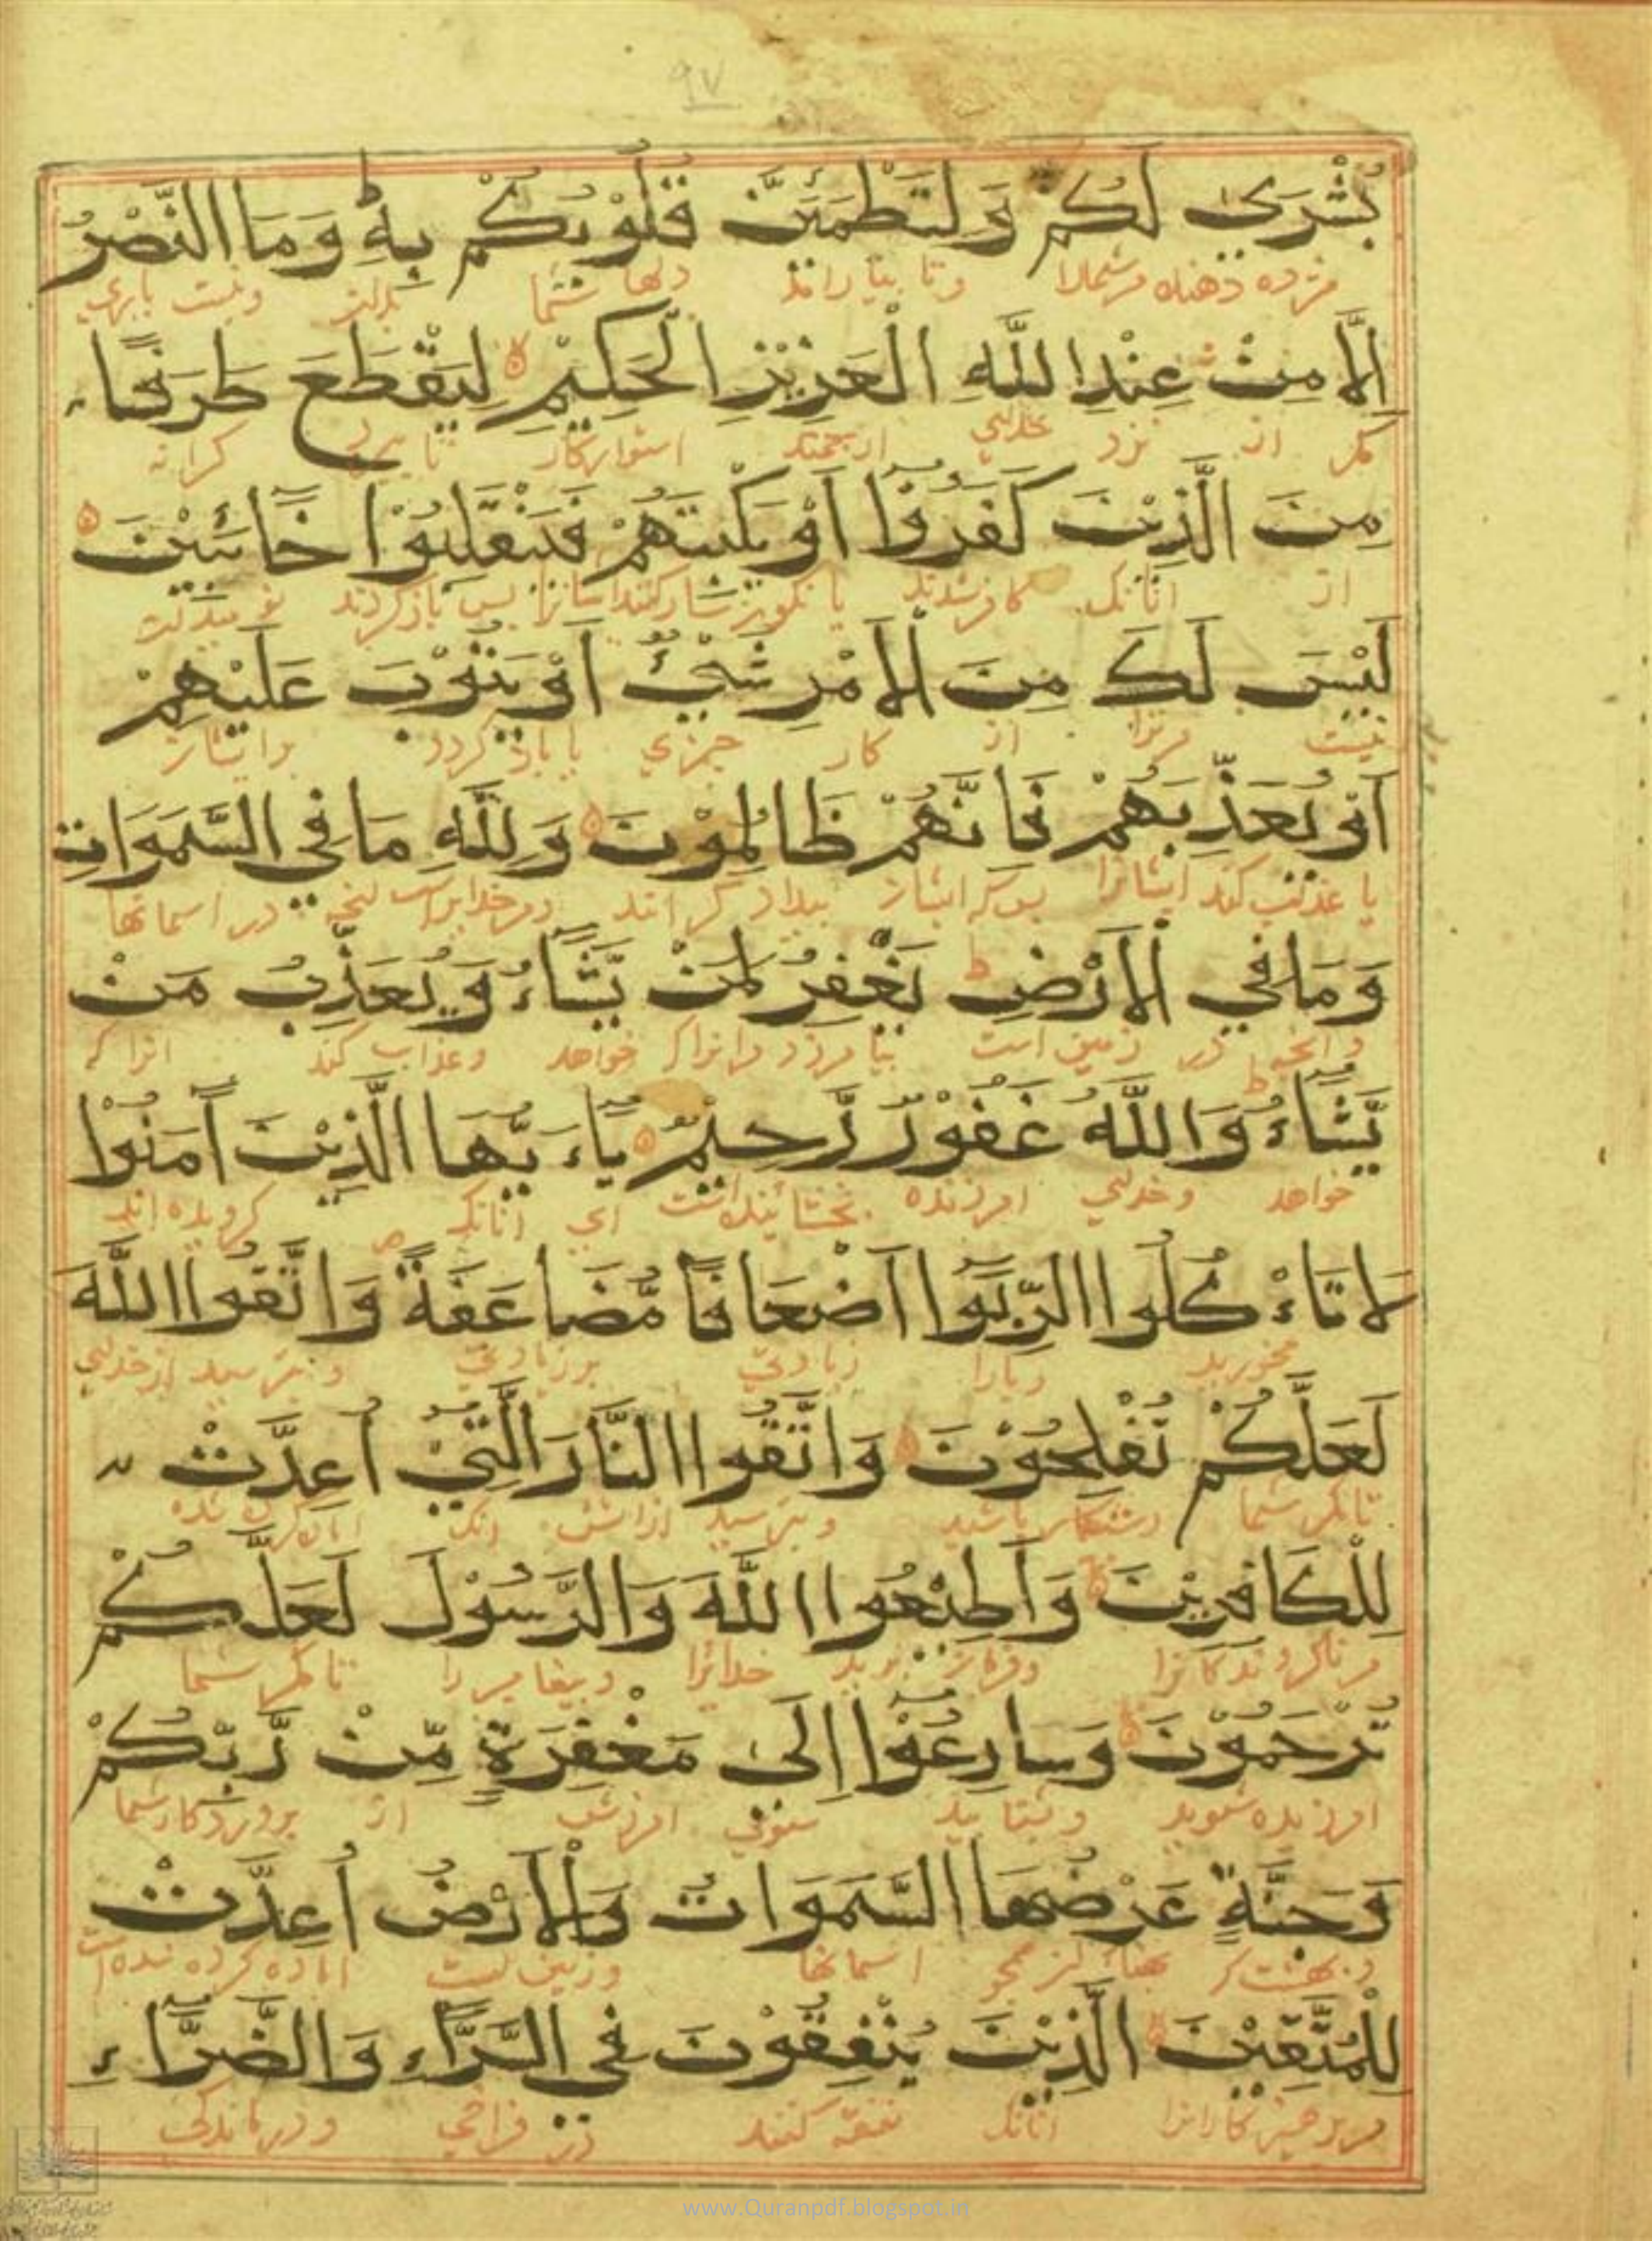 ٩٧
بُشْرَىٰ لَكُمْ وَلِتَطْمَئِنَّ قُلُوْبُكُمْ بِهٖ وَمَا النَّصْرُ
مژده دهنده مر شمارا وتا بیاراند دلها شما بدان ونیست یاری
اِلَّا مِنْ عِنْدِ اللّٰهِ الْعَزِيْزِ الْحَكِيْمِ لِيَقْطَعَ طَرَفًا
مگر از نزد خدای ارجمند استوارکار تا ببرد کرانه
مِنَ الَّذِيْنَ كَفَرُوْا اَوْ يَكْبِتَهُمْ فَيَنْقَلِبُوْا خَائِبِيْنَ
از انانک کافر شدند یا نکونسار کند ایشانرا پس باز گردند
لَيْسَ لَكَ مِنَ الْاَمْرِ شَيْءٌ اَوْ يَتُوْبَ عَلَيْهِمْ
نیست مر ترا از کار چیزی یا باز گردد بر ایشان
اَوْ يُعَذِّبَهُمْ فَاِنَّهُمْ ظَالِمُوْنَ وَلِلّٰهِ مَا فِي السَّمَوَاتِ
یا عذاب کند ایشانرا ایشان بیداد گرانند در اسمانها
وَمَا فِي الْاَرْضِ يَغْفِرُ لِمَنْ يَّشَاءُ وَيُعَذِّبُ مَنْ
وانچه در زمین است بیامرزد مرانرا که خواهد وعذاب کند انرا که
يَّشَاءُ وَاللّٰهُ غَفُوْرٌ رَّحِيْمٌ يَاءَيُّهَا الَّذِيْنَ آمَنُوْا
خواهد وخدای امرزنده بخشاینده است ای انانک گرویده اند
لَا تَاءْكُلُوا الرِّبَوٰا اَضْعَافًا مُّضَاعَفَةً وَاتَّقُوا اللّٰهَ
مخورید ربارا زیادتی بر زیادتی وبترسید از خدای
لَعَلَّكُمْ تُفْلِحُوْنَ وَاتَّقُوا النَّارَ الَّتِيْ اُعِدَّتْ
تا مگر شما رستکار باشید وبترسید از اتش انک
لِلْكَافِرِيْنَ وَاَطِيْعُوا اللّٰهَ وَالرَّسُوْلَ لَعَلَّكُمْ
مر ناگروندگانرا وفرمان برید خدایرا وپیغامبر را تا مگر شما
تُرْحَمُوْنَ وَسَارِعُوْا اِلَىٰ مَغْفِرَةٍ مِّنْ رَّبِّكُمْ
امرزیده شوید وبشتابید سوی امرزش از پروردکار شما
وَجَنَّةٍ عَرْضُهَا السَّمَوَاتُ وَالْاَرْضُ اُعِدَّتْ
وبهشت که اسمانها وزمین است اماده کرده شده است
لِلْمُتَّقِيْنَ الَّذِيْنَ يُنْفِقُوْنَ فِي السَّرَّاءِ وَالضَّرَّاءِ
مر پرهیزکارانرا انانک نفقه کنند در فراخی ودرماندکی
www.Quranpdf.blogspot.in